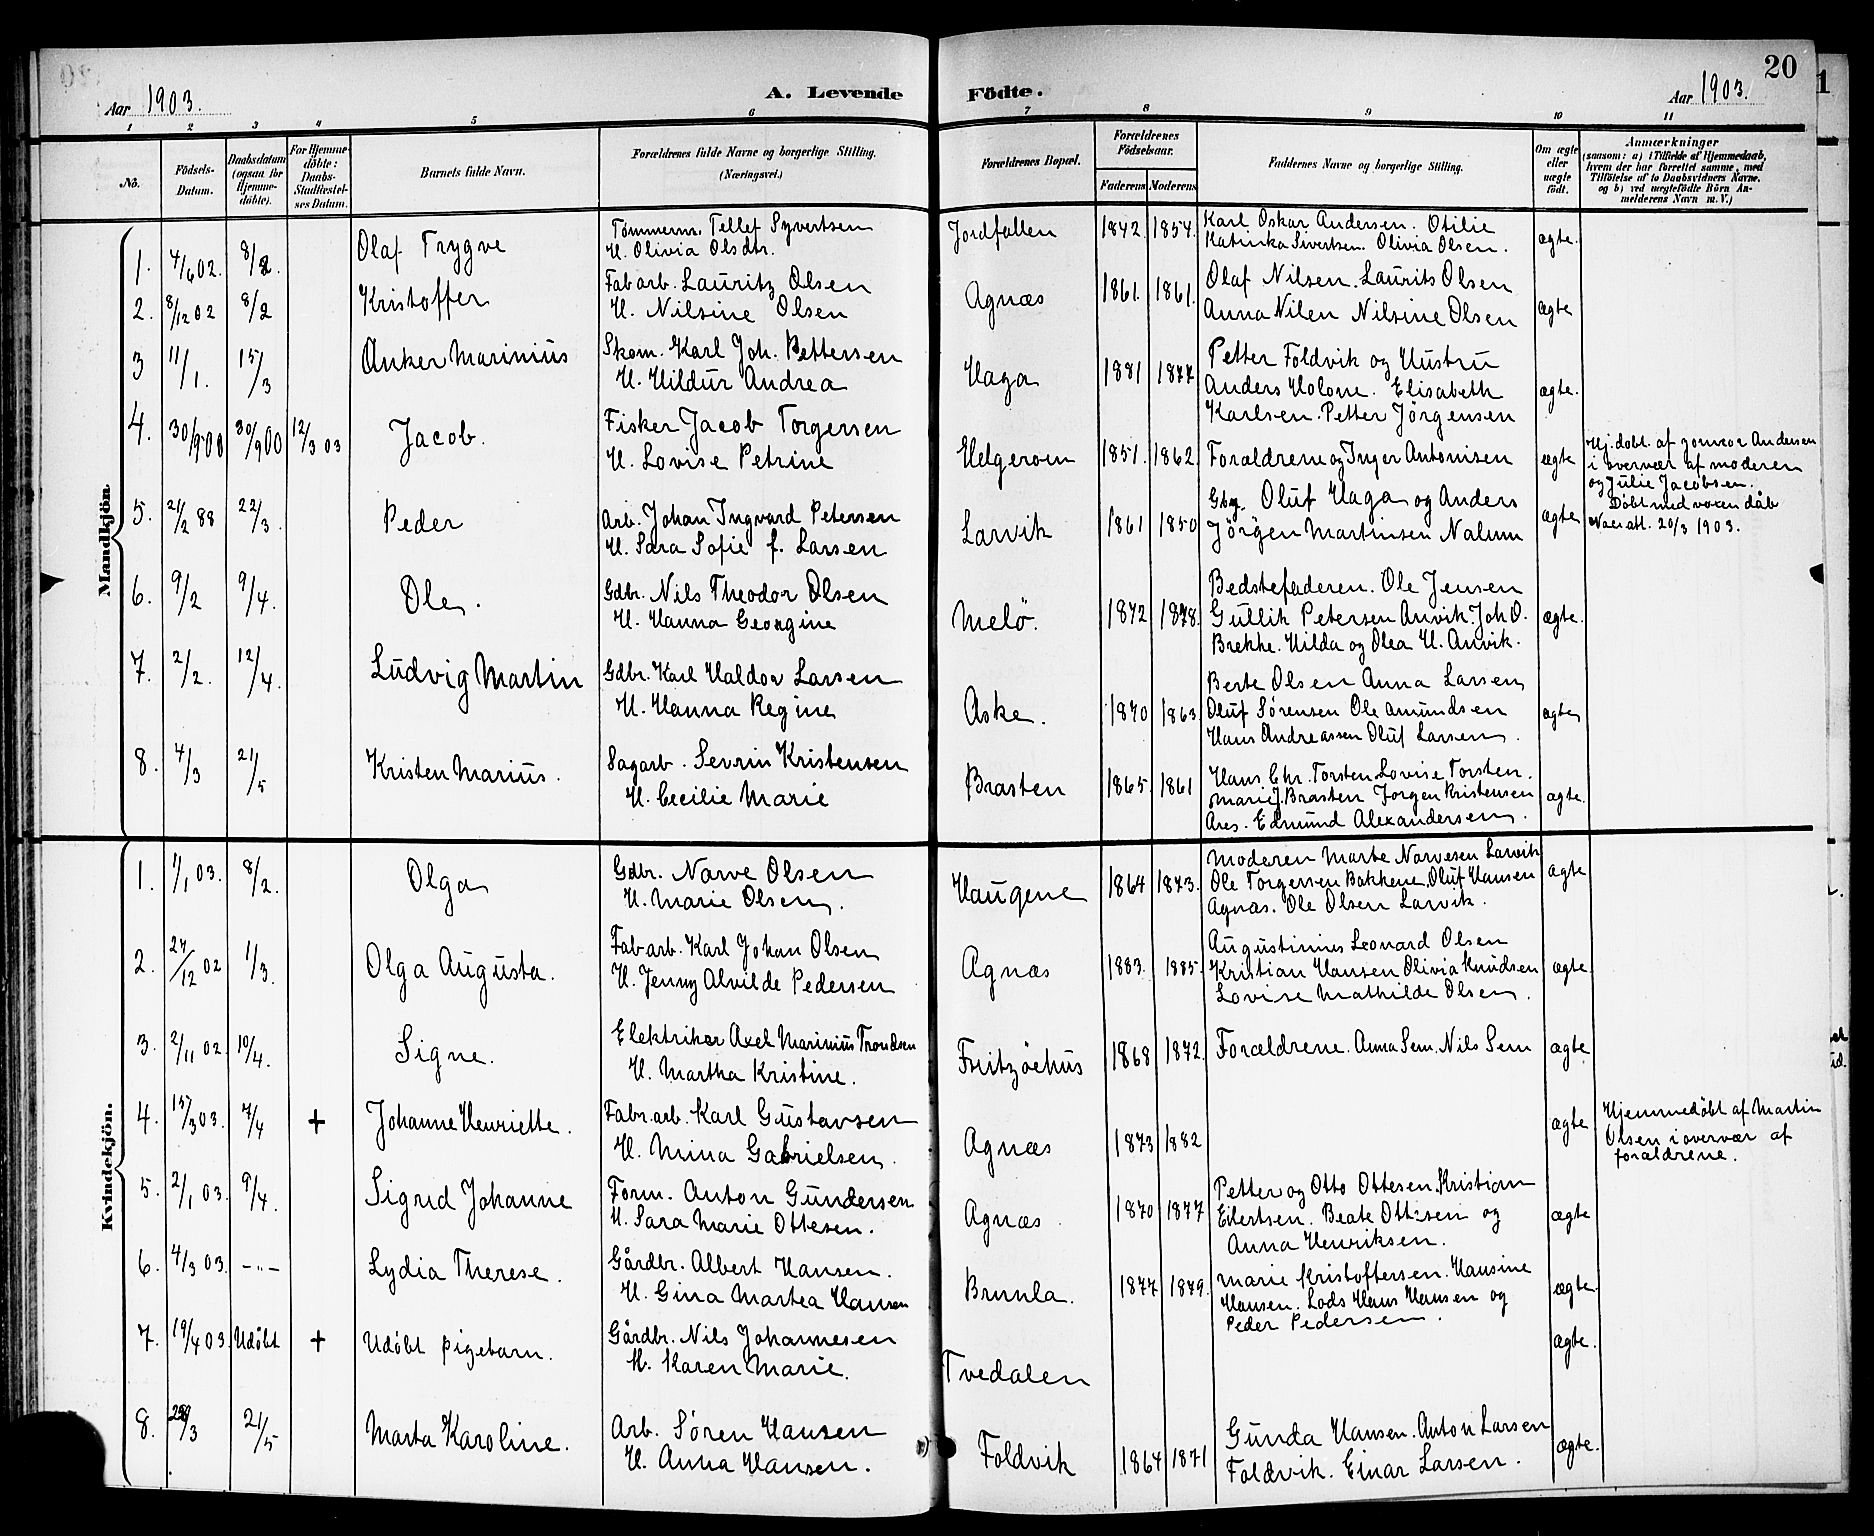 20
Aar 1903. A. Levende Födte. Aar 1903.
1 2 3 4 5 6 7 8 9 10 11
No. Födsels-Datum. Daabsdatum (ogsaa for Hjemme-döbte). For Hjemme-döbte: Daabs-Stadfæstel-ses Datum. Barnets fulde Navn. Forældrenes fulde Navne og borgerlige Stilling. (Næringsvei.) Forældrenes Bopæl. Forældrenes Födselsaar. Faderens Moderens Faddernes Navne og borgerlige Stilling. Om ægte eller uægte födt. Anmærkninger (saasom: a) i Tilfælde af Hjemmedaab, hvem der har forrettet samme, med Tilföielse af to Daabsvidners Navne, og b) ved uægtefödte Börn Anmelderens Navn m. V.)
Mandkjön.
1. 4/6 02. 8/2. Olaf Trygve Tömmerm. Tellef Syvertsen Jordfallen 1842. 1854. Karl Oskar Andersen. Otilie ægte.
H. Olivia Olsdtr. Katinka Sivertsen. Olivia Olsen.
2. 8/12 02 8/2 Kristoffer Fabarb. Lauritz Olsen Agnæs 1861. 1861. Olaf Nilsen. Laurits Olsen ægte
H. Nilsine Olsen Anna Nilen Nilsine Olsen
3 11/1. 15/3 Anker Marinius Skom. Karl Joh. Pettersen Haga 1881 1877 Petter Foldvik og Hustru ægte.
H. Hildur Andrea Anders Holone. Elisabeth
Karlsen. Petter Jörgensen
4. 30/9 00 30/9 00 12/3 03 Jacob. Fisker Jacob Torgersen Helgeroen 1851. 1862. Forældrene og Inger Antonisen ægte Hj. döbt. af jomfor Andersen
H. Lovise Petrine i overvær af moderen
og Julie Jacobsen.
5. 21/2 88 22/3. Peder Arb. Johan Ingvard Petersen Larvik 1861 1850 Gbg. Oluf Haga og Anders ægte Döbt med voxen dåb
H. Sara Sofie f. Larsen Jörgen Martinsen Nalum 20/3 1903.
6. 9/2 9/4. Ole. Gdbr. Nils Theodor Olsen Melö. 1872 1878. Bedstefaderen. Ole Jensen ægte.
H. Hanna Georgine Gullik Petersen Anvik. Joh O.
Brekke. Hilda og Olea H. Anvik.
7. 2/2. 12/4. Ludvig Martin Gdbr. Karl Haldor Larsen Aske. 1870 1863 Berte Olsen Anna Larsen ægte
H. Hanna Regine Oluf Sörensen Ole Amundsen
Hans Andreassen Oluf Larsen.
8. 4/3 21/5 Kristen Marius. Sagarb. Sevrin Kristensen Brasten 1865. 1861 Hans Chr. Torsten Lovise Torsten. ægte.
H. Cecilie Marie Marie J. Brasten Jorgen Kristensen
Ares. Edmund Alexandersen.
Kvindekjön.
1. 1/1 03. 8/2. Olga Gdbr. Narve Olsen Haugene 1864 1873. Moderen Marte Narvesen Larvik ægte
H. Marie Olsen. Ole Torgersen Bakkene. Oluf Hansen
Agnæs. Ole Olsen Larvik.
2. 27/12 02 1/3. Olga Augusta. Fabarb. Karl Johan Olsen Agnæs 1883. 1885. Augustinius Leonard Olsen ægte
H. Jenny Alvilde Pedersen Kristian Hansen Olivia Knudsen
Lovise Mathilde Olsen.
3. 2/11 02. 10/4. Signe. Elektriker Axel Marinius Trondsen Fritzöehus 1868 1872. Forældrene. Anna Sem. Nils Sem ægte
H. Martha Kristine.
4. 15/3 03. 7/4 + Johanne Henriette. Fabr.arb. Karl Gustavsen Agnæs 1873 1882 ægte Hjemmedöbt af Martin
H. Mina Gabrielsen. Olsen i overvær af
forældrene.
5. 2/1 03. 9/4. Sigrid Johanne Form. Anton Gundersen Agnæs 1870 1877 Petter og Otto Ottesen. Kristian ægte
H. Sara Marie Ottesen. Eilertsen. Beate Ottesen og
Anna Henriksen.
6. 4/3 03. -"- Lydia Therese. Gårdbr. Albert Hansen. Brunla. 1877 1879. Marie Kristoffersen. Hansine ægte.
H. Gina Martea Hansen Hansen. Lods Hans Hansen og
Peder Pedersen.
7. 19/4 03. Udöbt + Udöbt pigebarn. Gårdbr. Nils Johannesen Tvedalen ægte.
H. Karen Marie.
8. /3 21/5 Marta Karoline. Arb. Sören Hansen Foldvik 1864 1871 Gunda Hansen. Anton Larsen ægte.
H. Anna Hansen. Foldvik. Einar Larsen.